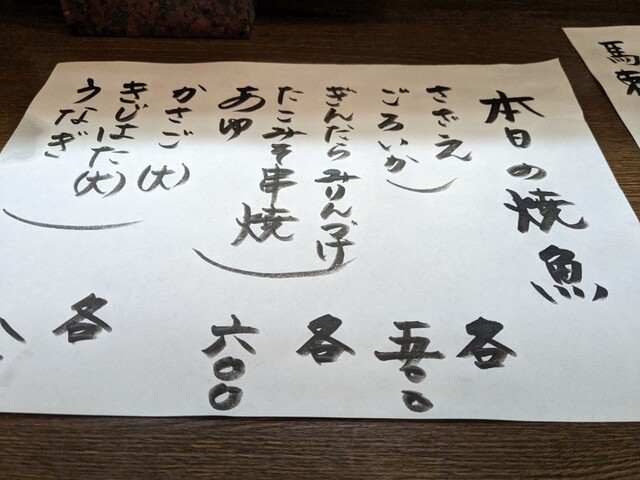 本日の焼魚
さざえ
ごろいか
各
五〇〇
ぎんだらみりんづけ
たこみそ串焼
あゆ
各
六〇〇
かさご(大)
きじはた(大)
うなぎ
各
八
馬